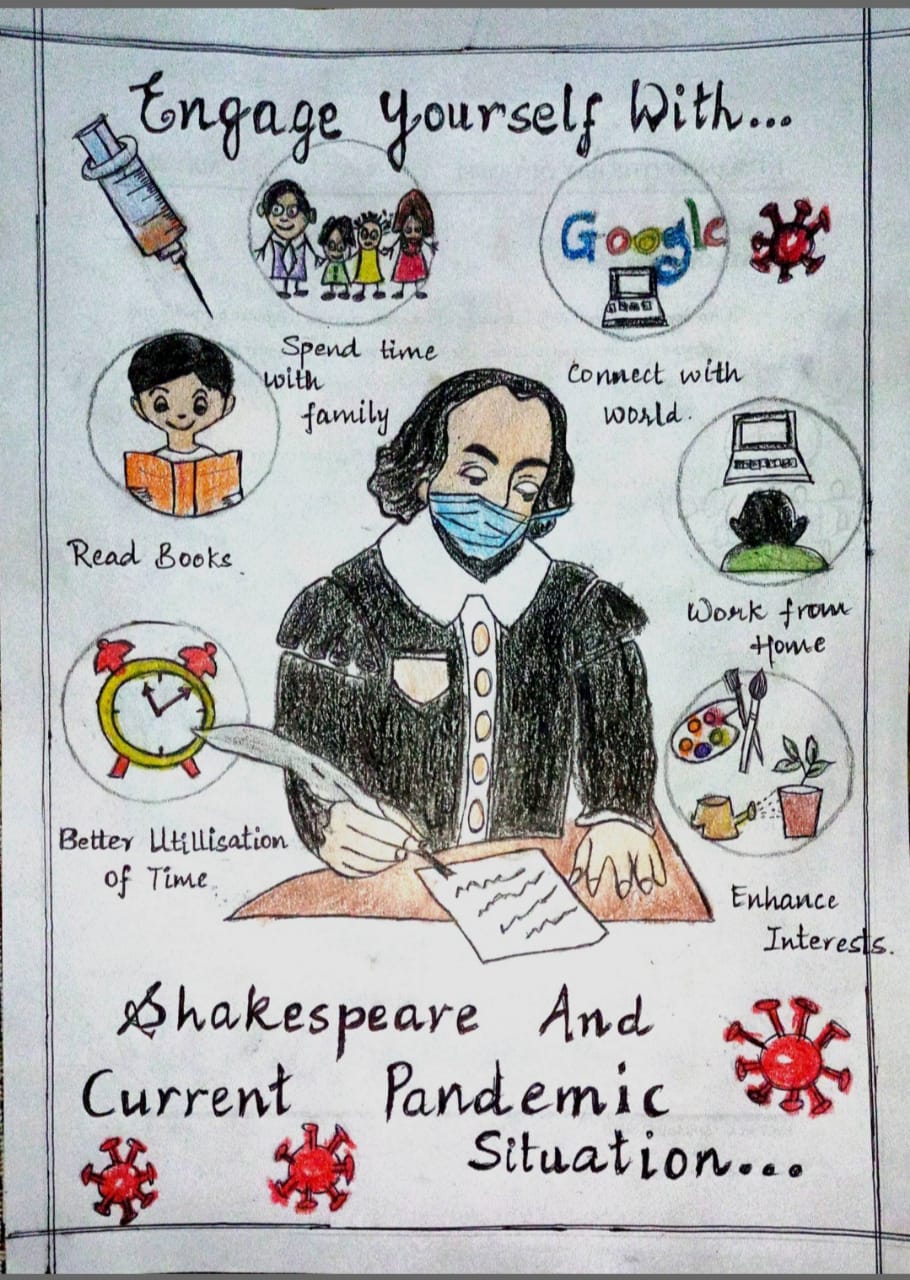 Engage Yourself With...
Google
Spend time
with
family
Connect with
world.
Read Books.
Work from
Home
Better Utillisation
of Time.
Enhance
Interests.
Shakespeare And
Current Pandemic
Situation...